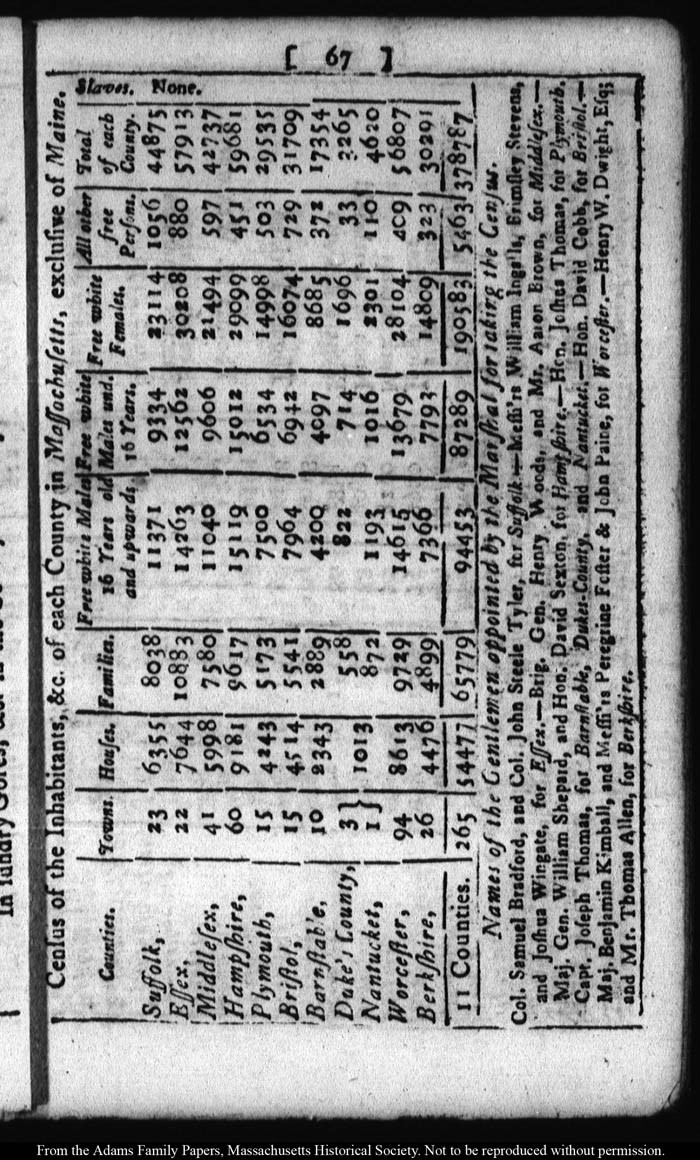 [ 67 ]
Census of the Inhabitants, &c. of each County in Massachusetts, exclusive of Maine.
Counties. | Towns. | Houses. | Families. | Free white Males 16 Years old and upwards | Free white Males und. 16 Years. | Free white Females. | All other free Persons. | Total of each County. | Slaves.
Suffolk, 23 6355 8038 11371 9334 23114 1056 44875 None.
Essex, 22 7644 10883 14263 12562 30208 880 57913
Middlesex, 41 5998 7580 11040 9606 21494 597 42737
Hampshire, 60 9181 9617 15119 15012 29099 451 59681
Plymouth, 15 4243 5173 7500 6534 14998 503 29535
Bristol, 15 4514 5541 7964 6942 16074 729 31709
Barnstable, 10 2343 2889 4200 4097 8685 372 17354
Duke's County, 3 } 558 822 714 1696 33 3265
Nantucket, 1 } 1013 872 1193 1016 2301 110 4620
Worcester, 94 8613 9729 14615 13679 28104 409 56807
Berkshire, 26 4476 4899 7366 7793 14809 323 30291
11 Counties. 265 54477 65779 94453 87289 190583 5463 378787
Names of the Gentlemen appointed by the Marshal for taking the Census.
Col. Samuel Bradford, and Col. John Steele Tyler, for Suffolk—Mess'rs William Ingalls, Brimsley Stevens,
and Joshua Wingate, for Essex.—Brig. Gen. Henry Woods, and Mr. Aaron Brown, for Middlesex.—
Maj. Gen. William Shepard, and Hon. David Sexton, for Hampshire.—Hon. Joshua Thomas, for Plymouth.
Capt. Joseph Thomas, for Barnstable, Dukes-County, and Nantucket.—Hon. David Cobb, for Bristol.—
Maj. Benjamin Kimball, and Mess'rs Peregrine Foster & John Paine, for Worcester.—Henry W. Dwight, Esq;
and Mr. Thomas Allen, for Berkshire.
From the Adams Family Papers, Massachusetts Historical Society. Not to be reproduced without permission.